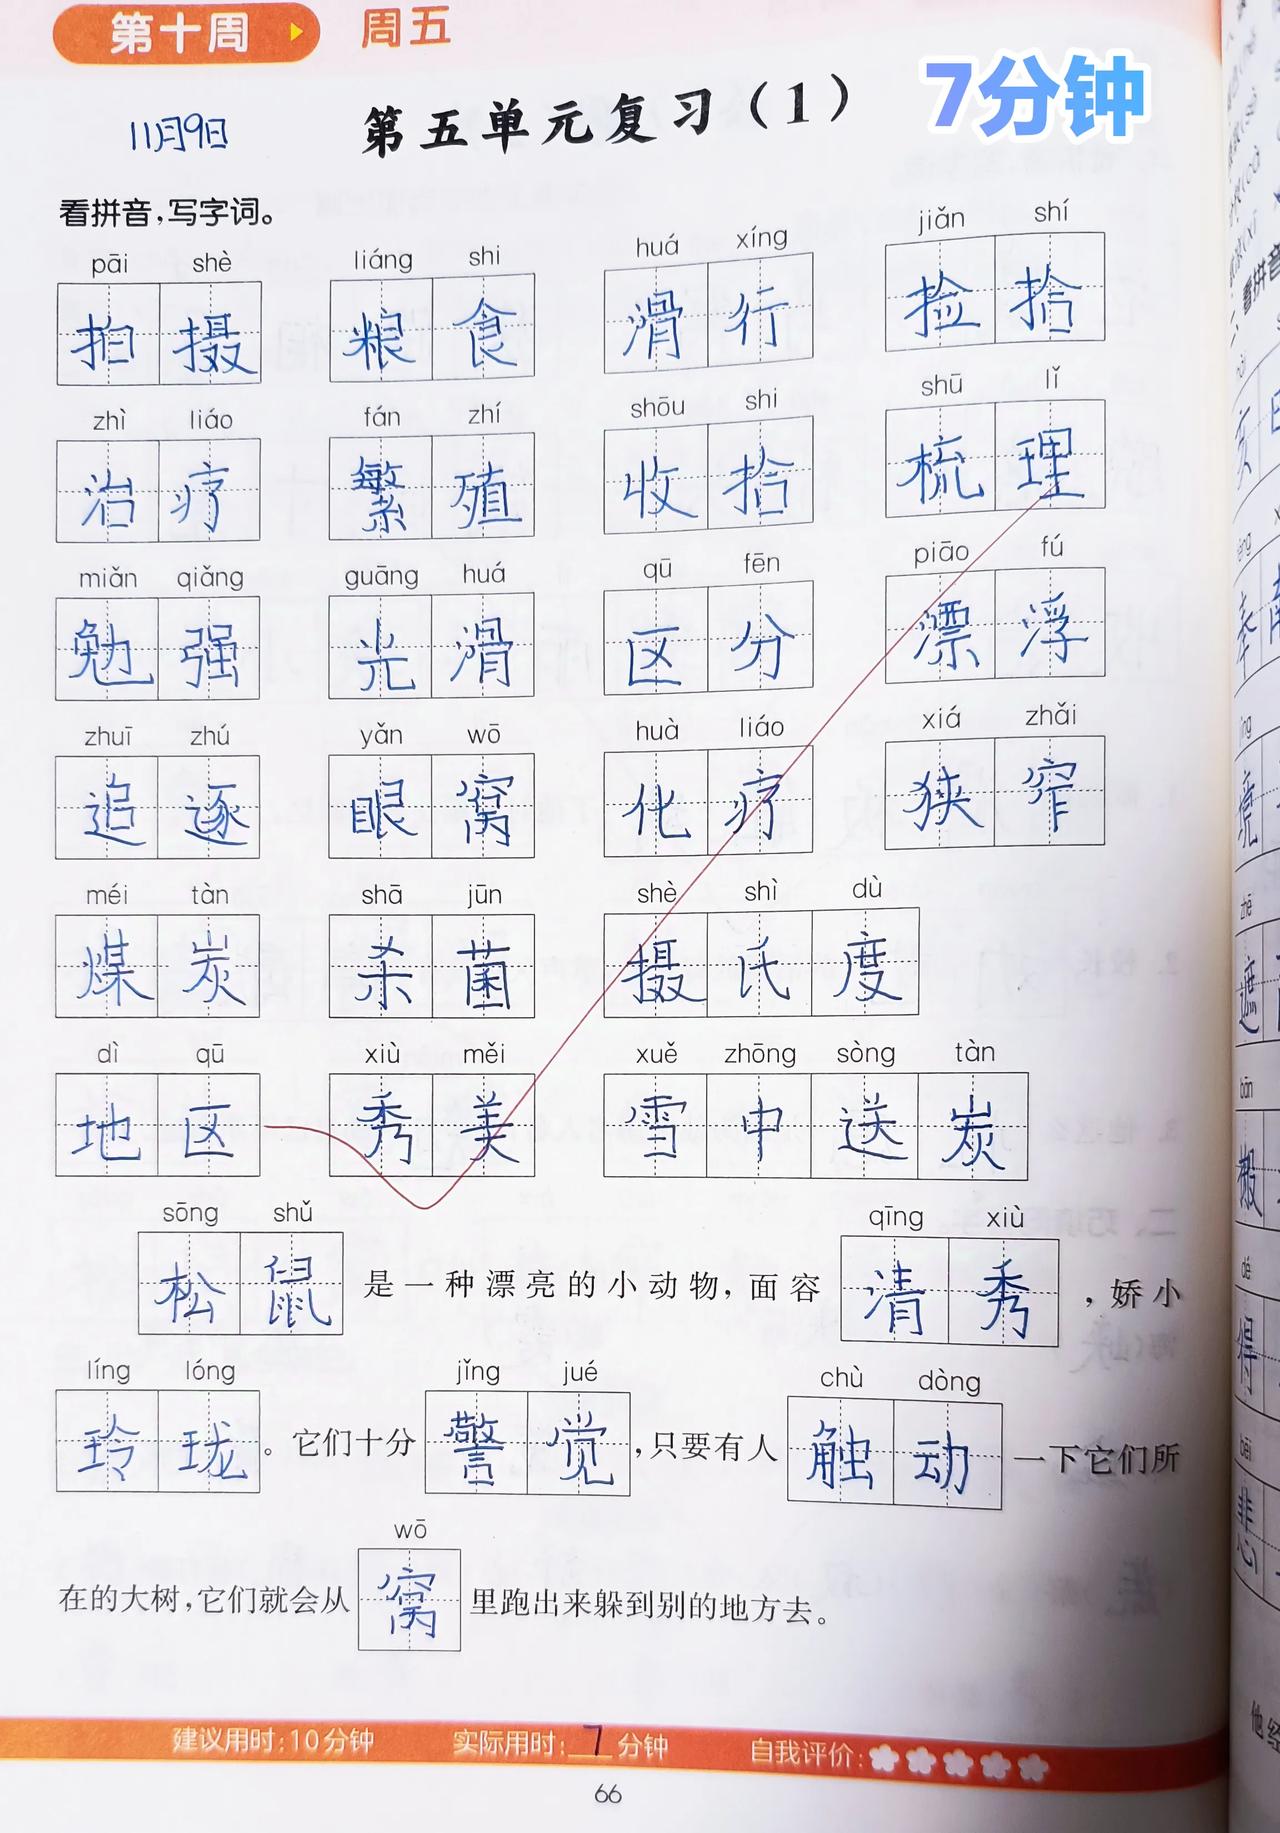 第十周 周五
7分钟
11月9日 第五单元复习（1）
看拼音，写字词。
pāi shè liáng shi huá xíng jiǎn shí
拍摄 粮食 滑行 捡拾
zhì liáo fán zhí shōu shi shū lǐ
治疗 繁殖 收拾 梳理
miǎn qiǎng guāng huá qū fēn piāo fú
勉强 光滑 区分 漂浮
zhuī zhú yǎn wō huà liáo xiá zhǎi
追逐 眼窝 化疗 狭窄
méi tàn shā jūn shè shì dù
煤炭 杀菌 摄氏度
dì qū xiù měi xuě zhōng sòng tàn
地区 秀美 雪中送炭
sōng shǔ qīng xiù
松鼠是一种漂亮的小动物，面容清秀，娇小
líng lóng jǐng jué chù dòng
玲珑。它们十分警觉，只要有人触动一下它们所
wō
在的大树，它们就会从窝里跑出来躲到别的地方去。
建议用时：10分钟 实际用时：7分钟 自我评价：
66